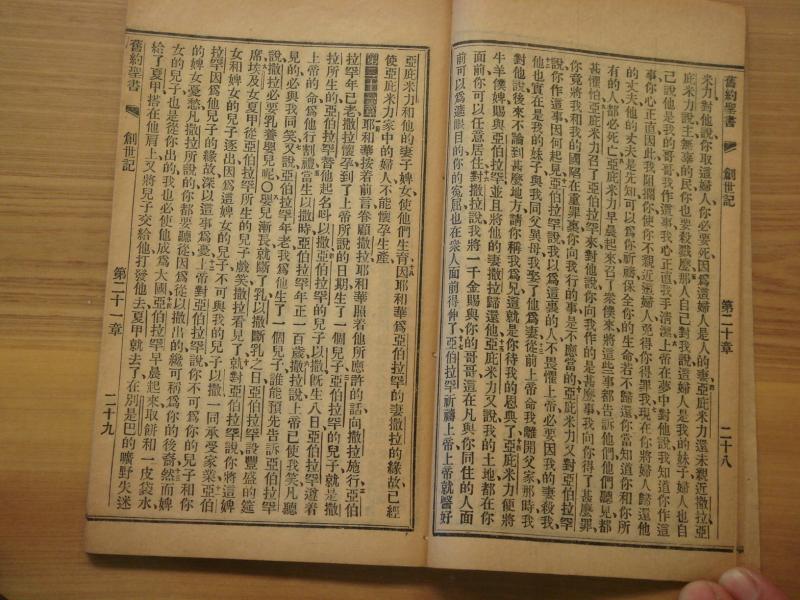 舊約聖書 創世記 第二十章 二十八
米力對他說你取這婦人你必要死因爲這婦人是人的妻亞庇米力還未親近撒拉亞
庇米力說主無辜的民你也要殺戮麼那人自己對我說這婦人是我的妹子婦人也自
己說他是我的哥哥我作這事我心正直我手清潔上帝在夢中對他說我知道你作這
事你心正直因此我阻攔你使你不親近這婦人免得你得罪我現在你將婦人歸還他
的丈夫他的丈夫是先知可以爲你祈禱保全你的生命若不歸還你當知道你和你所
有的人都必死亡亞庇米力早晨起來召了衆僕來將這些事都告訴他們他們聽見都
甚懼怕亞庇米力召了亞伯拉罕來對他說你向我作的是甚麼事我向你得了甚麼罪
你竟將我和我的國陷在重罪裏你向我行的事是不應當的亞庇米力又對亞伯拉罕
說你作這事因何起見亞伯拉罕說我以爲這裏的人不畏懼上帝必要因我的妻殺我
他也實在是我的妹子與我同父異母我娶了他爲妻從前上帝命我離開父家那時我
對他說後來不論到甚麼地方請你稱我爲兄這就是你待我的恩典了亞庇米力便將
牛羊僕婢賜與亞伯拉罕並且將他的妻撒拉歸還他亞庇米力又說我的土地都在你
面前你可以任意居住對撒拉說我將一千金賜與你的哥哥這在凡與你同住的人面
前可以爲遮眼目的你的冤屈也在衆人面前得伸了亞伯拉罕祈禱上帝上帝就醫好
亞庇米力和他的妻子婢女使他們生育因耶和華爲亞伯拉罕的妻撒拉的緣故已經
使亞庇米力家中的婦人不能懷孕生產
第二十一章 耶和華按着前言眷顧撒拉耶和華照着他所應許的話向撒拉施行亞伯
拉罕年已老撒拉懷孕到了上帝所說的日期生了一個兒子亞伯拉罕的兒子就是撒
拉所生的亞伯拉罕替他起名呌以撒亞伯拉罕的兒子以撒旣生八日亞伯拉罕遵着
上帝的命爲他行割禮當生以撒時亞伯拉罕年正一百歲撒拉說上帝已使我笑凡聽
見的必與我同笑又說亞伯拉罕年老我爲他生了一個兒子誰能預先告訴亞伯拉罕
說撒拉必要乳養嬰兒呢〇嬰兒漸長就斷了乳以撒斷乳之日亞伯拉罕設豐盛的筵
席埃及女夏甲從亞伯拉罕所生的兒子戲笑撒拉看見了就對亞伯拉罕說你將這婢
女和婢女的兒子逐出因爲這婢女的兒子不可與我的兒子以撒一同承受家業亞伯
拉罕因爲他兒子的緣故深以這事爲憂上帝對亞伯拉罕說你不可爲你的兒子和你
的婢女憂愁凡撒拉所說的你都要聽從因爲從以撒出的纔可稱爲你的後裔然而婢
女的兒子也是從你出的我也必使他成爲大國亞伯拉罕早晨起來取餅和一皮袋水
給了夏甲搭在他肩上又將兒子交給他打發他去夏甲就去了在別是巴的曠野失迷
舊約聖書 創世記 第二十一章 二十九